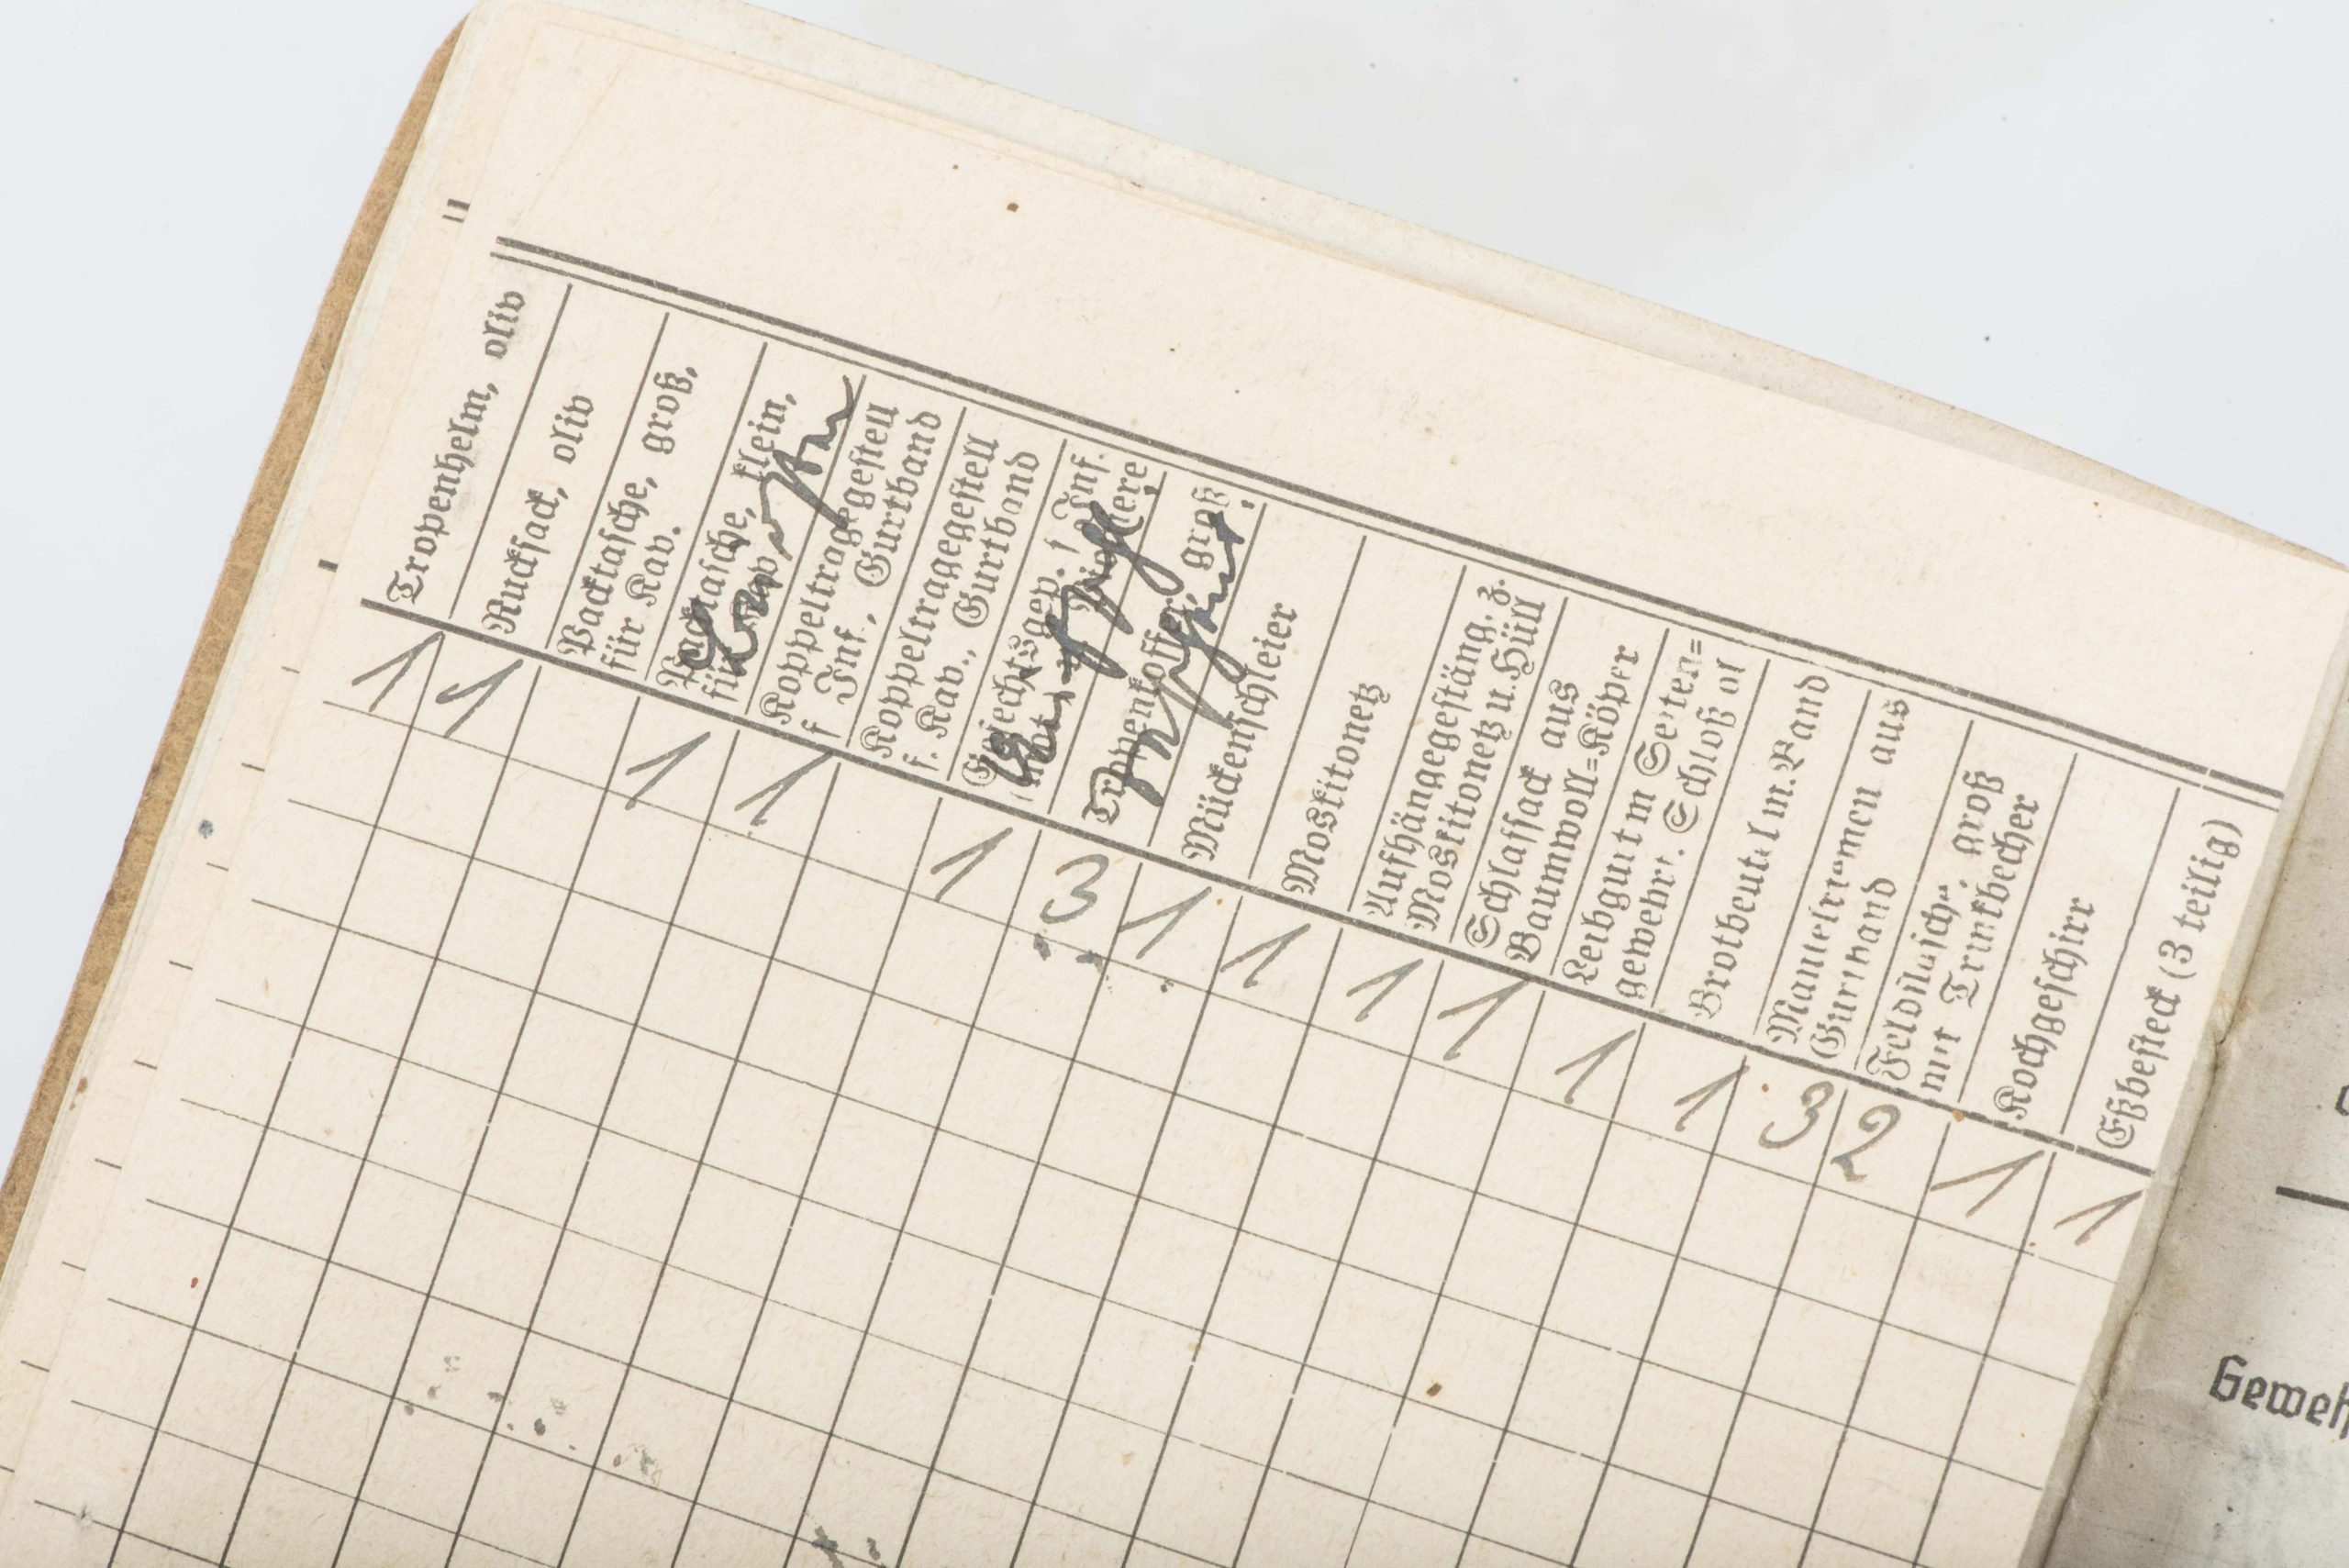 Tropenhelm, oliv
Rucksack, oliv
Packtasche, groß,
für Kav.
Packtasche, klein,
für
Koppeltragegestell
f. Inf., Gurtband
Koppeltragegestell
f. Kav., Gurtband
Gefechtsgep. f. Inf.
Tropenkoffer, groß
Mückenschleier
Moskitonetz
Aufhängegestäng. z.
Moskitonetz u. Hüll
Schlafsack aus
Baumwoll=Köper
Leibgurt m Seiten=
gewehr. Schloß ol
Brotbeutel m. Band
Mantelriemen aus
Gurtband
Feldflasche, groß
mit Trinkbecher
Kochgeschirr
Eßbesteck (3 teilig)
1 1 1 1 1 3 1 1 1 1 1 1 3 2 1 1
Geweh